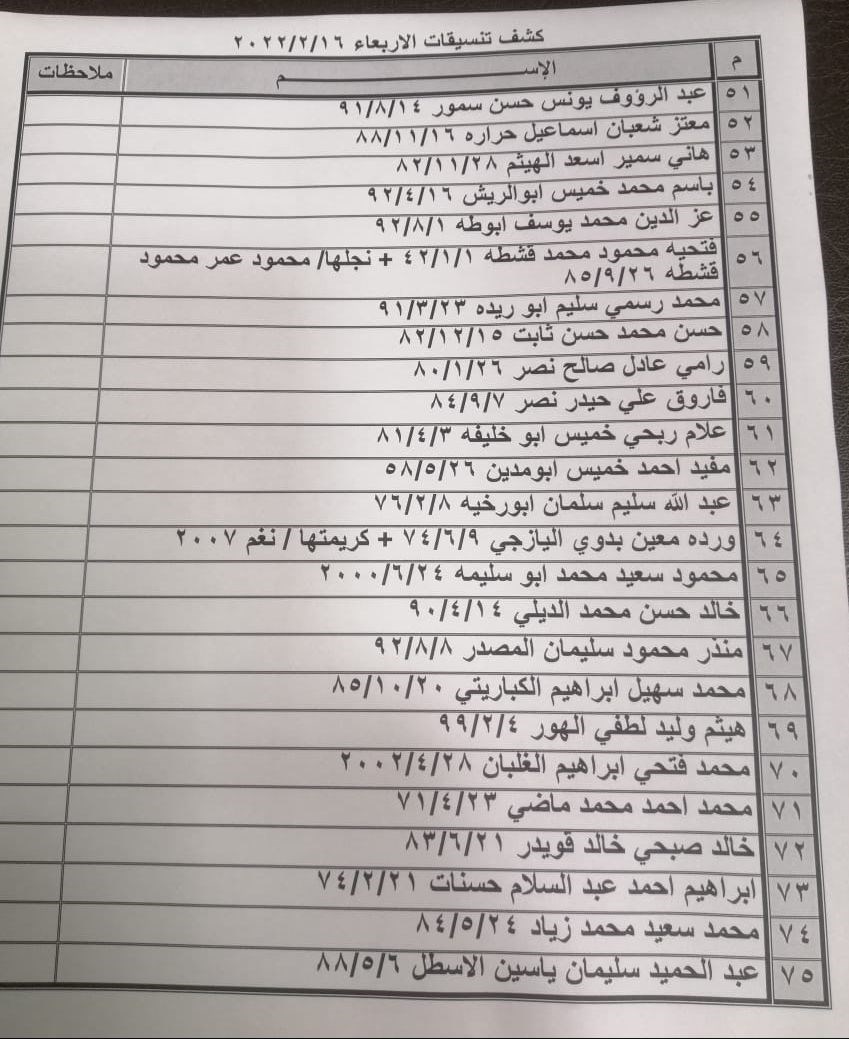 كشف تنسيقات الاربعاء ٢٠٢٢/٢/١٦
م الإســـم ملاحظات
٥١ عبد الرؤوف يونس حسن سمور ٩١/٨/١٤
٥٢ معتز شعبان اسماعيل حراره ٨٨/١١/١٦
٥٣ هاني سمير اسعد الهيثم ٨٢/١١/٢٨
٥٤ باسم محمد خميس ابوالريش ٩٢/٤/١٦
٥٥ عز الدين محمد يوسف ابوطه ٩٢/٨/١
٥٦ فتحيه محمود محمد قشطه ٤٢/١/١ + نجلها/ محمود عمر محمود
قشطه ٨٥/٩/٢٦
٥٧ محمد رسمي سليم ابو ريده ٩١/٣/٢٣
٥٨ حسن محمد حسن ثابت ٨٢/١٢/١٥
٥٩ رامي عادل صالح نصر ٨٠/١/٢٦
٦٠ فاروق علي حيدر نصر ٨٤/٩/٧
٦١ علام ربحي خميس ابو خليفه ٨١/٤/٣
٦٢ مفيد احمد خميس ابومدين ٥٨/٥/٢٦
٦٣ عبد الله سليم سلمان ابورخيه ٧٦/٢/٨
٦٤ ورده معين بدوي اليازجي ٧٤/٦/٩ + كريمتها / نغم ٢٠٠٧
٦٥ محمود سعيد محمد ابو سليمه ٢٠٠٠/٦/٢٤
٦٦ خالد حسن محمد الديلي ٩٠/٤/١٤
٦٧ منذر محمود سليمان المصدر ٩٢/٨/٨
٦٨ محمد سهيل ابراهيم الكباريتي ٨٥/١٠/٢٠
٦٩ هيثم وليد لطفي الهور ٩٩/٢/٤
٧٠ محمد فتحي ابراهيم الغلبان ٢٠٠٢/٤/٢٨
٧١ محمد احمد محمد ماضي ٧١/٤/٢٣
٧٢ خالد صبحي خالد قويدر ٨٣/٦/٢١
٧٣ ابراهيم احمد عبد السلام حسنات ٧٤/٢/٢١
٧٤ محمد سعيد محمد زياد ٨٤/٥/٢٤
٧٥ عبد الحميد سليمان ياسين الاسطل ٨٨/٥/٦